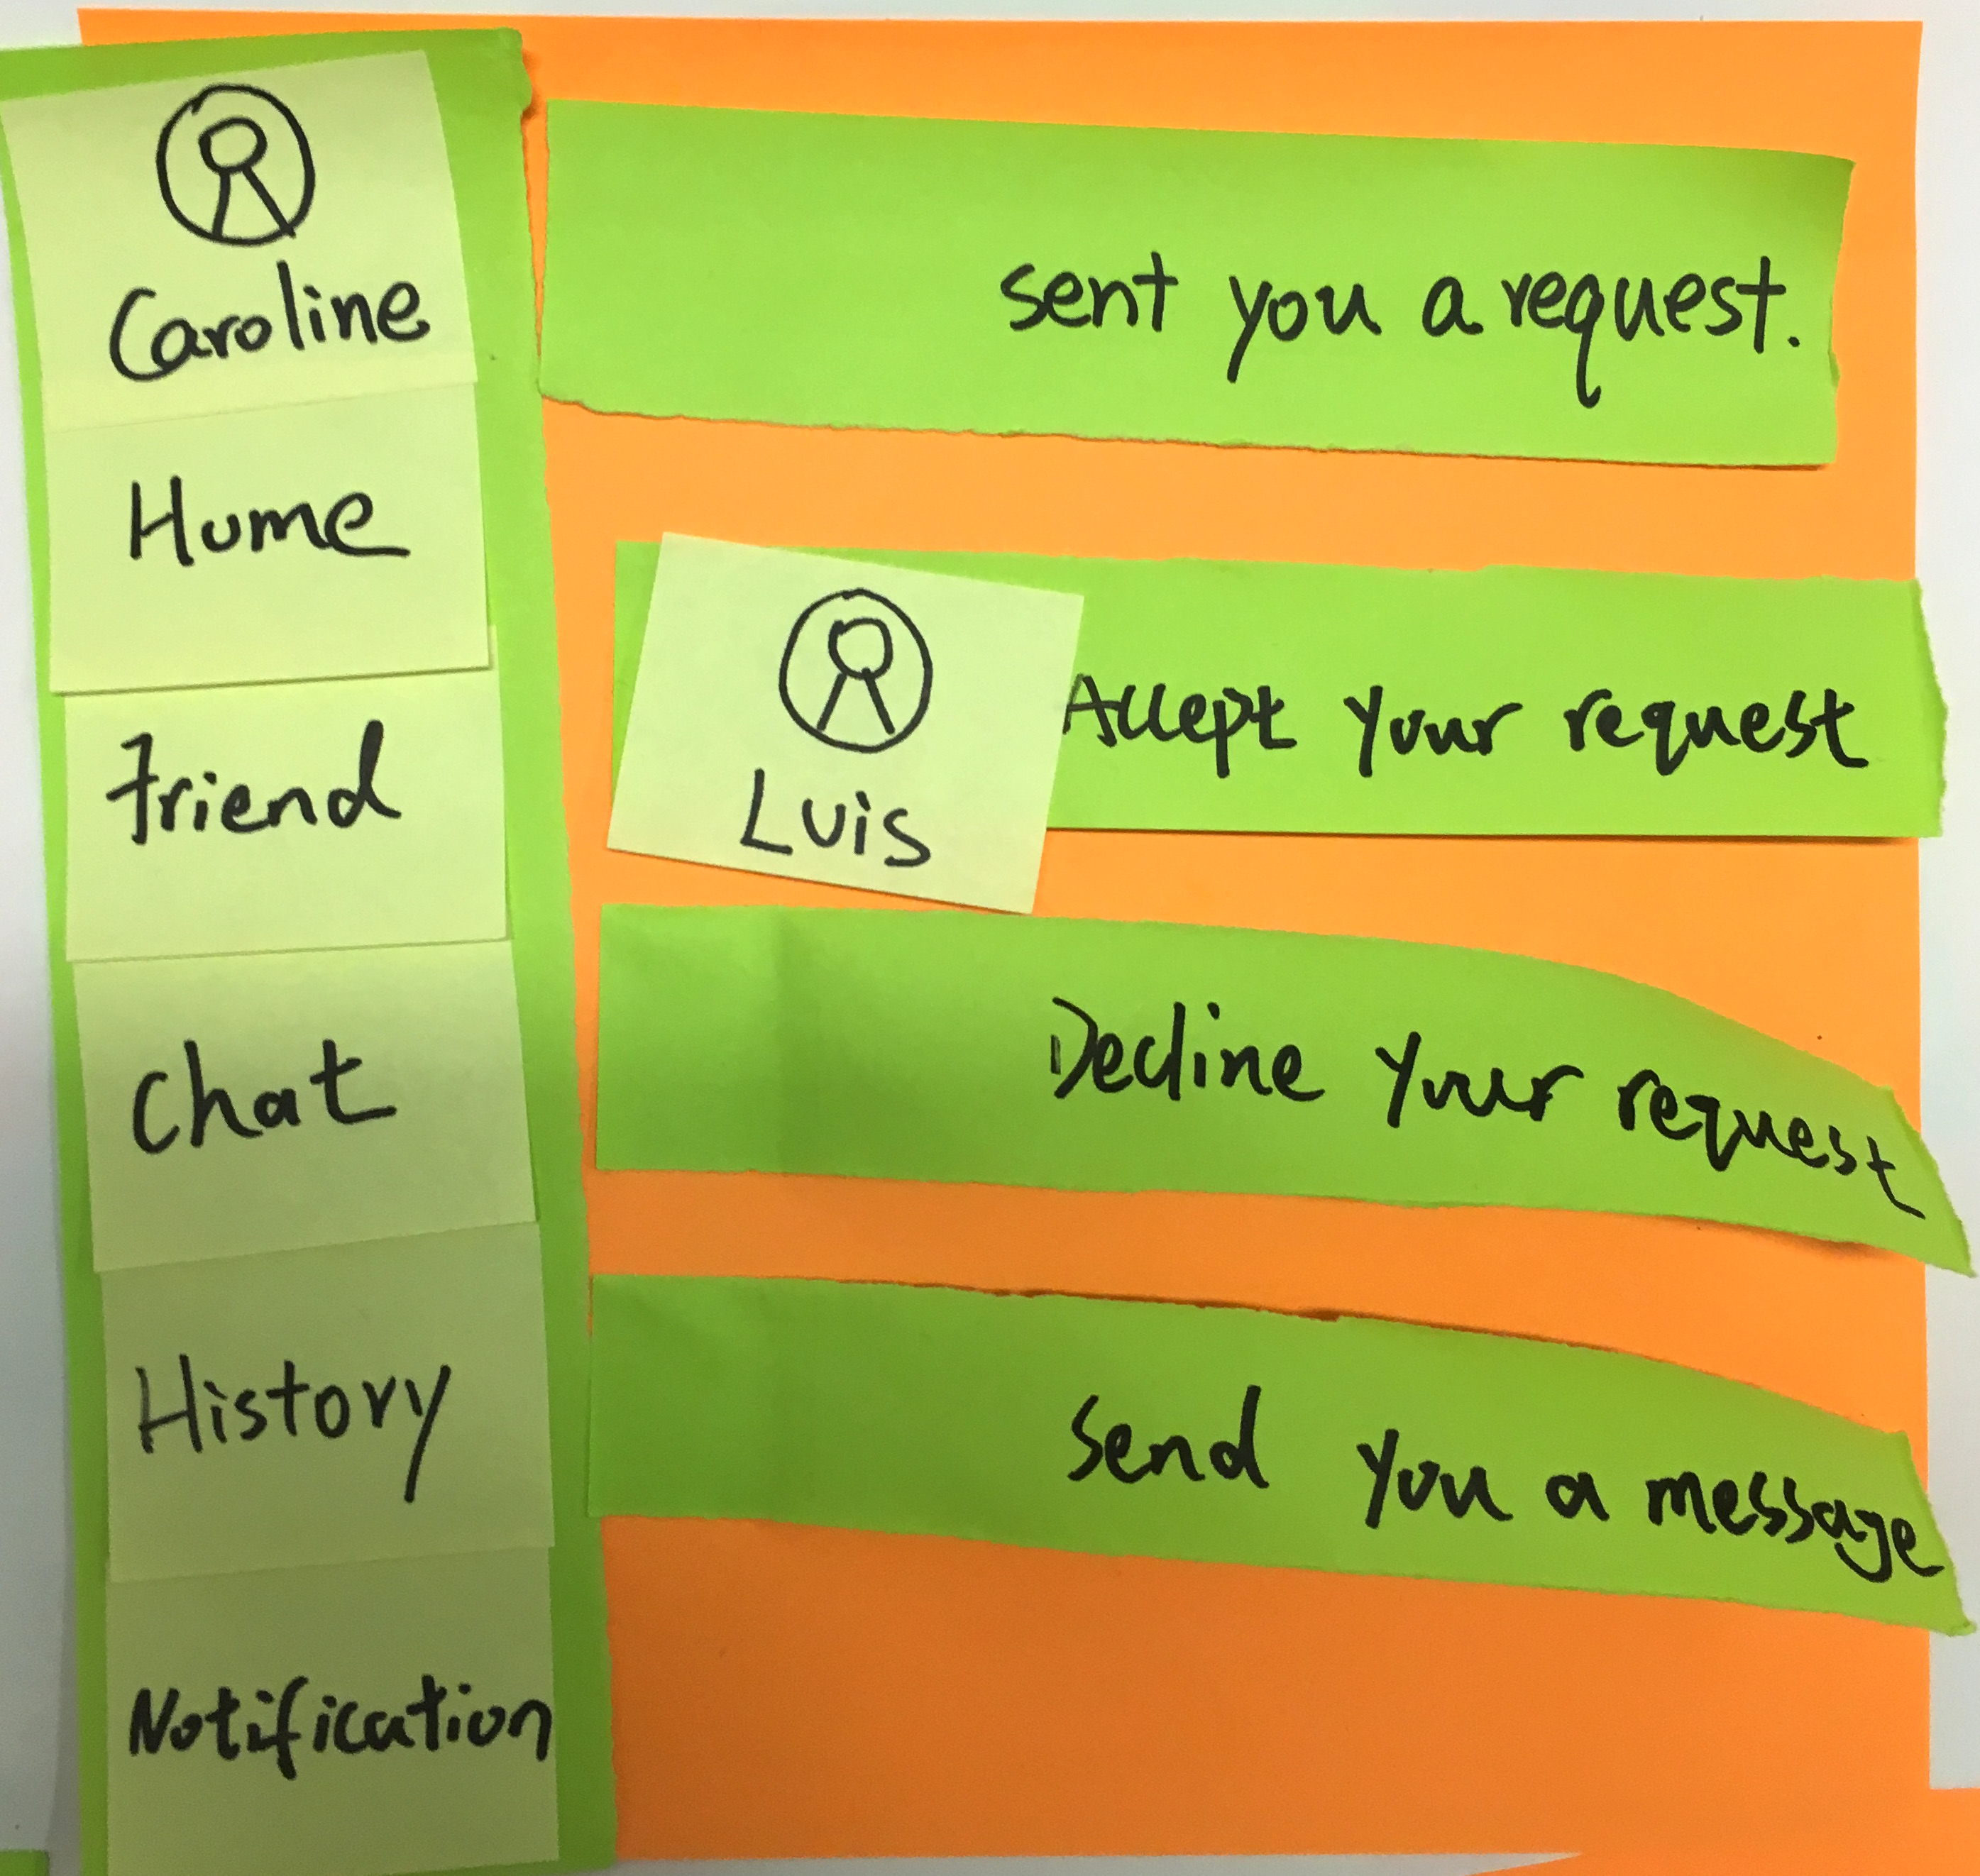 Caroline
Home
Friend
Chat
History
Notification
sent you a request.
Luis
Accept your request
Decline your request
Send you a message